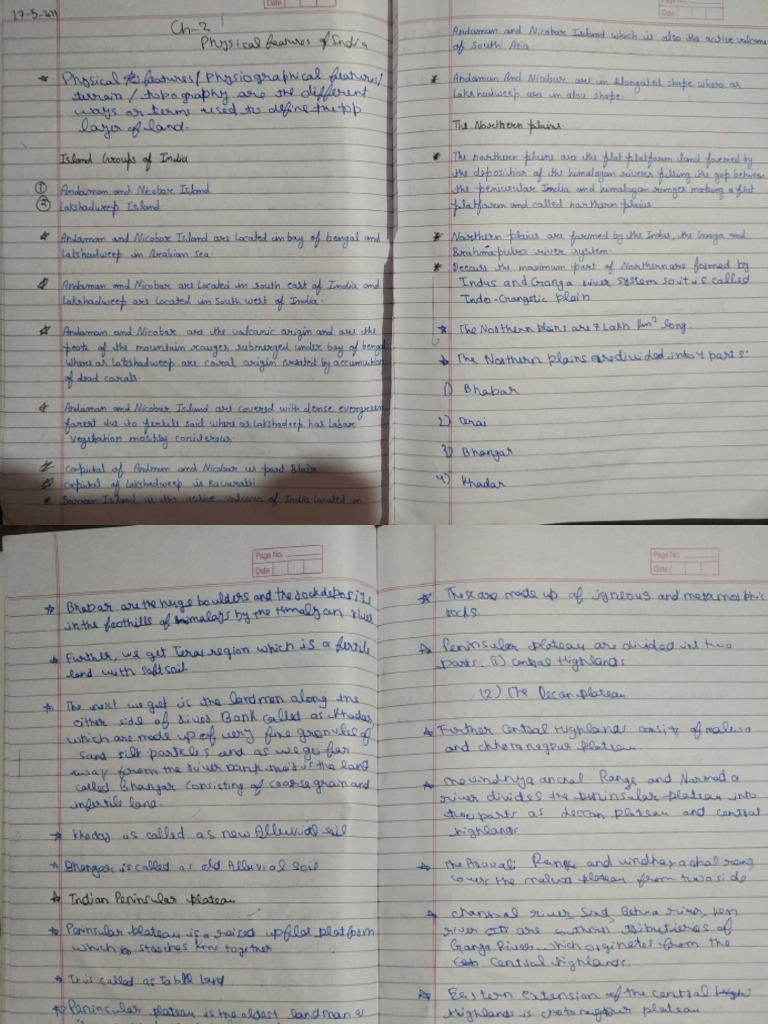 17-5-24
Date
Ch-2
Physical features of India
* Physical features/Physiographical features/
terrain/topography are the different
ways or terms used to define the top
layer of land.
Island Groups of India
① Andaman and Nicobar Island
② Lakshadweep Island
* Andaman and Nicobar Island are Located in bay of bengal and
Lakshadweep in Arabian Sea.
* Andaman and Nicobar are Located in south east of India and
Lakshadweep are Located in South west of India.
* Andaman and Nicobar are the volcanic origin and are the
peak of the mountain ranges submerged under bay of bengal
where as Lakshadweep are coral origin created by accumution
of dead corals.
* Andaman and Nicobar Island are covered with dense evergreen
forest due to fertile soil where as Lakshadeep has
vegitation moshly coniderous
* Capital of Andman and Nicobar is port Blair
* Capital of Lakshadweep is Kavarathi
* Barren Island is the active volcano of India Located in
Andaman and Nicobar Island which is also the active volcano
of South Asia.
* Andaman And Nicobar are in Elongated shape where as
Lakshadweep are in atou shape.
The Northern plains.
* The northern plains are the flat platform land formed by
the deposition of the himalayan rivers filling the gap between
the peninsular India and himalayan ranges making a flat
platform and called northern plains
* Northern plains are formed by the Indus, the Ganga and
Brahmaputra river system.
* Because the maximum part of Northern are formed by
Indus and Ganga river system so it is called
Indo-Gangetic plain
* The Northern plains are 7 Lakh km² long.
* The Northern plains are divided into 4 parts:
1) Bhabar
2) Terai
3) Bhangar
4) Khadar
Page No.
Date
* Bhabar are the huge boulders and the rock deposits
in the foothills of himalays by the Himalyan river
* Further, we get Terai region which is a fertile
land with soft soil
* The next we get is the landman along the
either side of river Bank called as Khadar
which are made up of very fine granules of
sand silt particles and as we go far
away from the river bank their is the land
called Bhangar consisting of coarse grain and
infertile land.
* Khadar is called as new Alluvial soil
* Bhangar is called as old Alluvial Soil
* Indian Peninsular plateau
* Peninsular plateau is a raised up flat platform
which streches km together
* It is called as Table Land
* Peninsular plateau is the oldest landman &
Page No.
Date
* These are made up of igneous and metamorphic
rocks.
* Peninsular plateau are divided in two
parts. (1) Central Highlands
(2) The Decan plateau
* Further Central Highlands consist of malwa
and chhotanagpur plateau.
* The vindhya anchal Range and Narmada
river divides the peninsular plateau into
two parts as deccan plateau and central
highlands
* The Aravali Range and vindhayachal rang
cover the malwa plateau from two side
* Chambal river, Sind, Betwa river, ken
river are southern tributieries of
Ganga River which orginates from the
Central highlands.
* Eastern extension of the central
Highlands is chotanagpur plateau